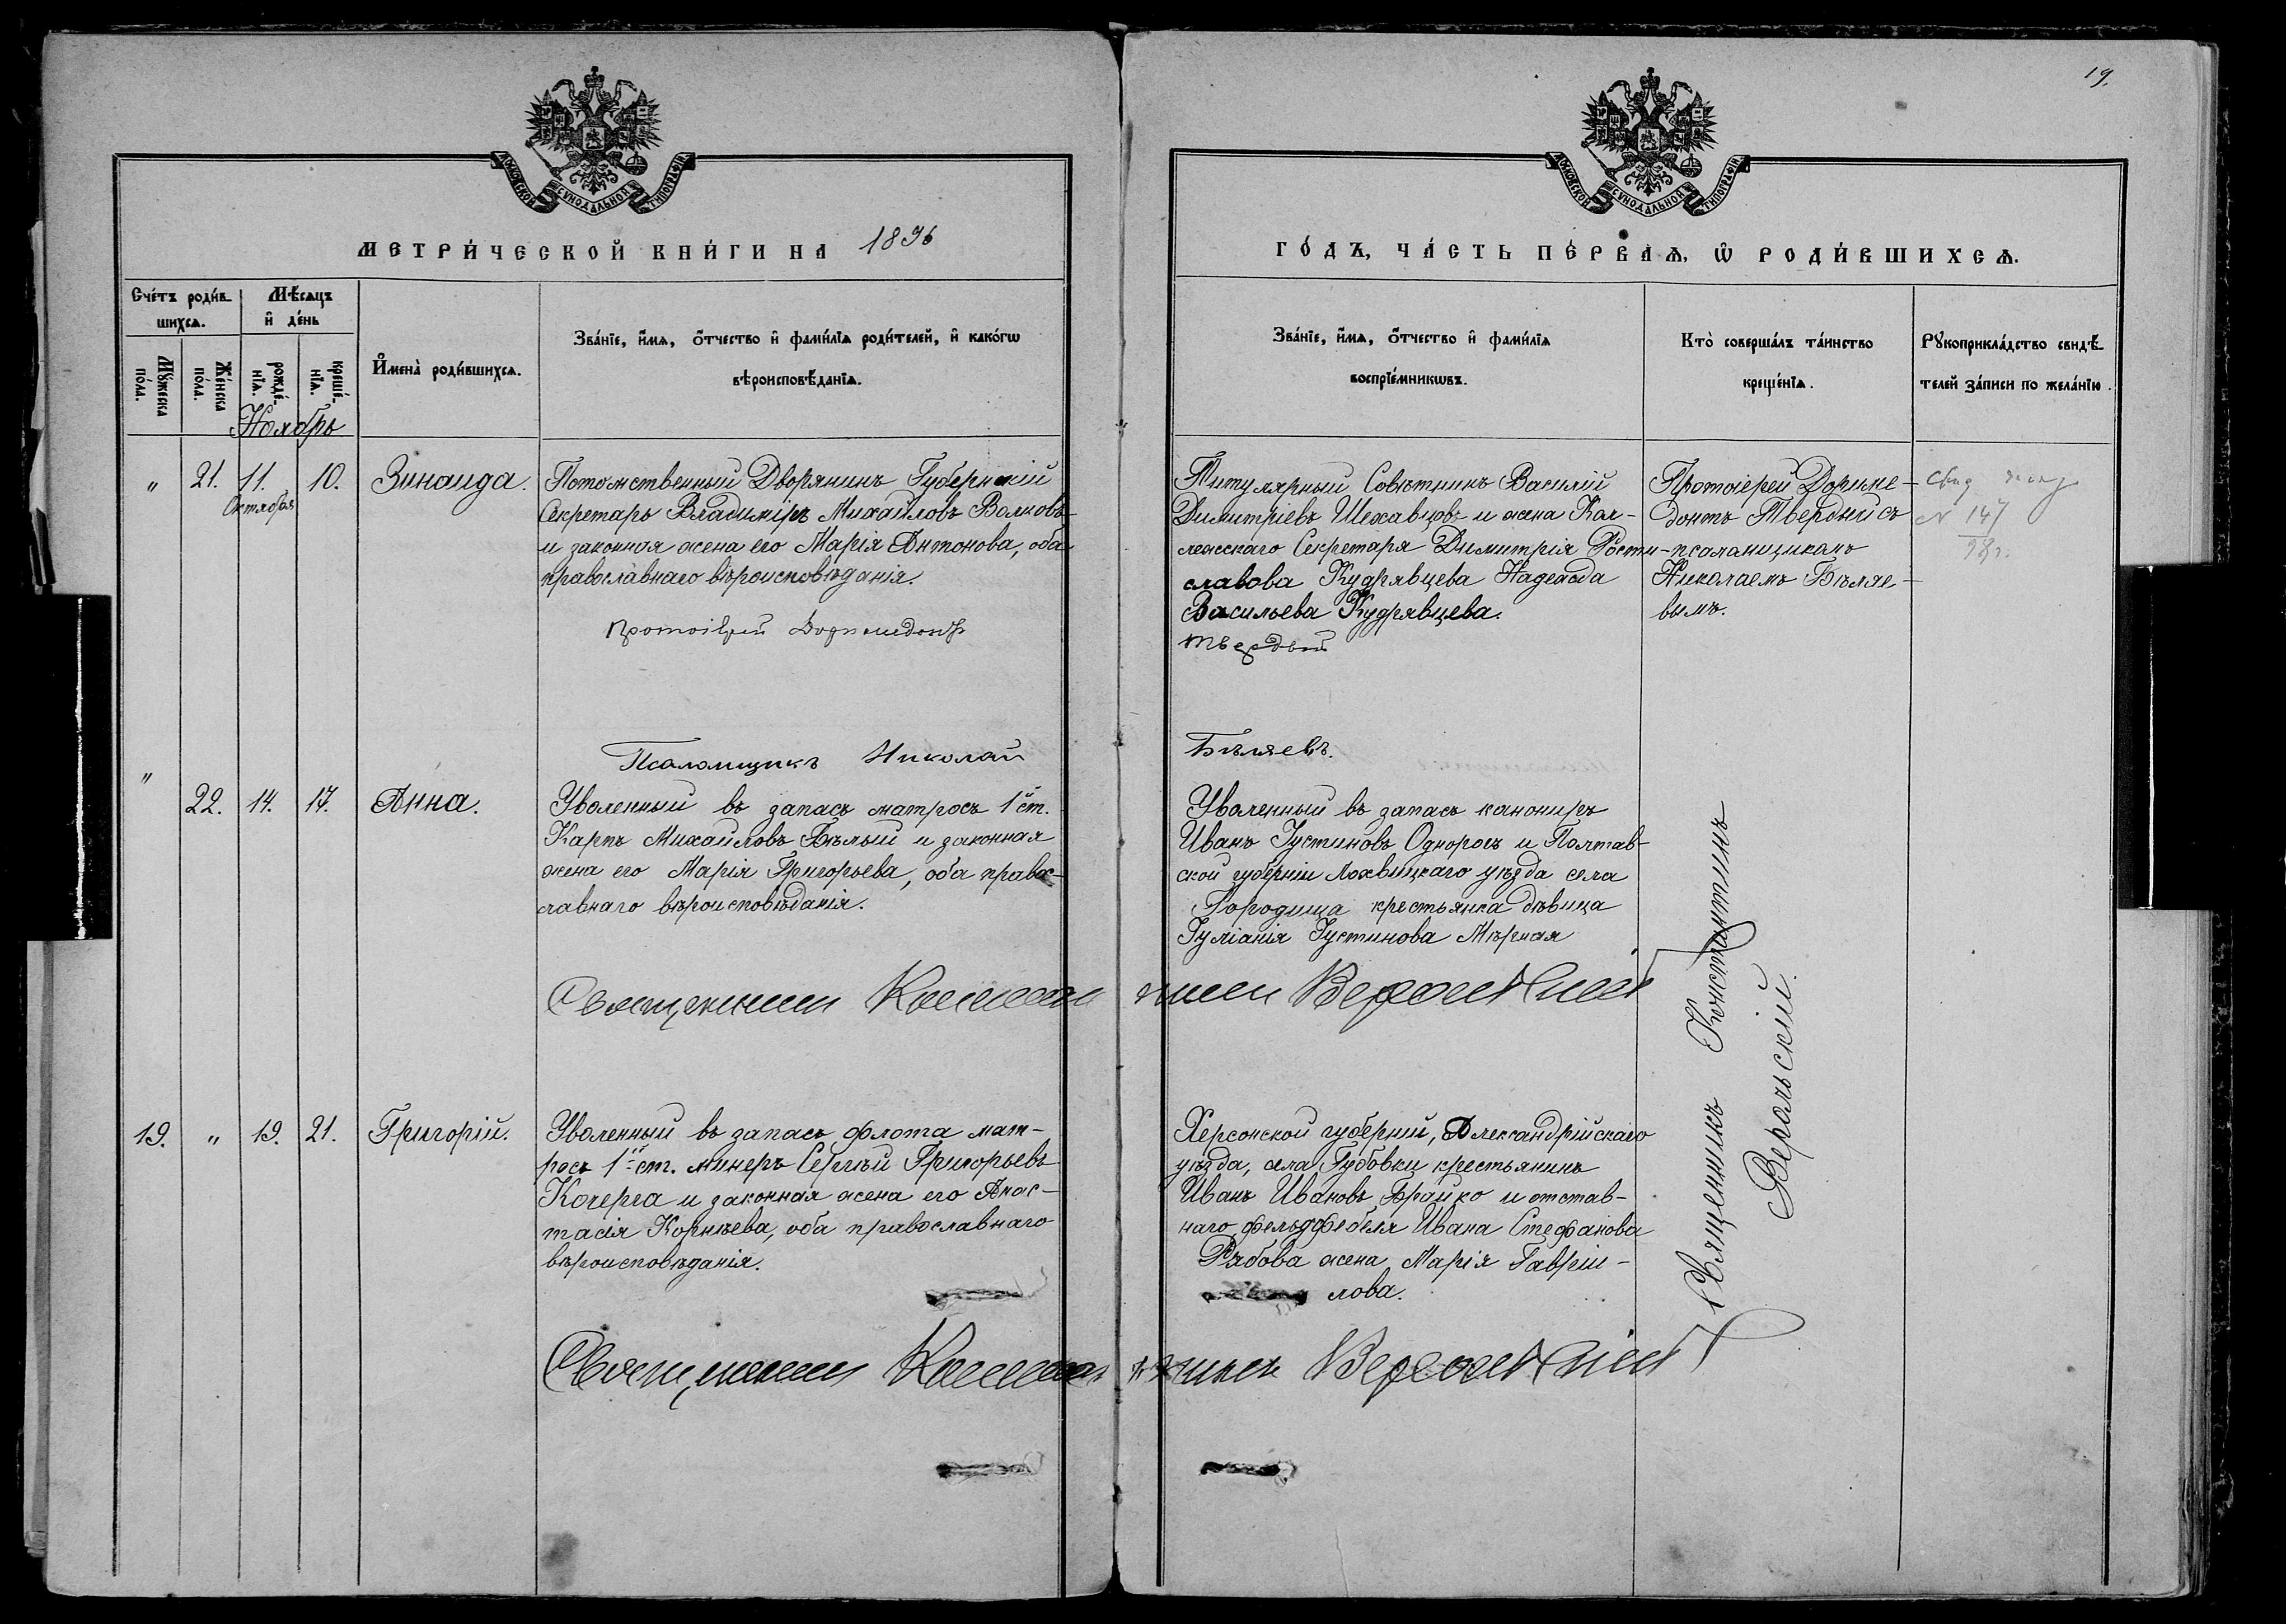 19.
МОСКОВСКОЙ СѴНОДАЛЬНОЙ ТИПОГРАФІИ
МОСКОВСКОЙ СѴНОДАЛЬНОЙ ТИПОГРАФІИ
МЕТРИ́ЧЕСКОЙ КНИ́ГИ НА 1896
ГО́ДЪ, ЧА́СТЬ ПЕ́РВАѦ, Ѡ РОДИ́ВШИХСѦ.
Сче́тъ роди́в
шихсѧ.
Мꙋ́жеска
по́ла.
Же́нска
по́ла.
Мѣ́сѧцъ
и҆ де́нь
рожде́-
нїѧ.
креще́-
нїѧ.
И҆мена̀ роди́вшихсѧ.
Зва́нїе, и҆́мѧ, ѻ҆́тчество и҆ фами́лїѧ роди́телей, и҆ како́гѡ
вѣроисповѣ́данїѧ.
Зва́нїе, и҆́мѧ, ѻ҆́тчество и҆ фами́лїѧ
воспрїе́мникѡвъ.
Кто̀ соверша́лъ та́инство
креще́нїѧ.
Рꙋкоприкла́дство свидѣ́
телей за́писи по жела́нїю.
Ноябрь
"
21.
11.
Октября
10.
Зинаида.
Потомственный Дворянинъ Губернскій
Секретарь Владиміръ Михайловъ Волковъ
и законная жена его Марія Антонова, оба
православнаго вѣроисповѣданія.
Протоіерей Доримедонтъ
Псаломщикъ Николай
Титулярный Совѣтникъ Василій
Димитріевъ Шехавцовъ и жена Кол-
лежскаго Секретаря Димитрія Рости-
славова Кудрявцева Надежда
Васильева Кудрявцева.
Твердый
Бѣляевъ.
Протоіерей Дориме-
донтъ Твердый съ
псаломщикомъ
Николаемъ Бѣляе-
вымъ.
Свид
№ 147
98 г.
"
22.
14.
17.
Анна.
Уволенный въ запасъ матросъ 1й ст.
Карпъ Михайловъ Бѣлый и законная
жена его Марія Григорьева, оба правос-
лавнаго вѣроисповѣданія.
Уволенный въ запасъ канониръ
Иванъ Іустиновъ Однорогъ и Полтав-
ской губерніи Лохвицкаго уѣзда села
Городища крестьянка дѣвица
Іуліанія Іустинова Мѣрная
Священникъ Константинъ
Священникъ Константинъ
19.
"
19.
21.
Григорій.
Уволенный въ запасъ флота мат-
росъ 1й ст. минеръ Сергѣй Григорьевъ
Кочерга и законная жена его Анас-
тасія Корнѣева, оба православнаго
вѣроисповѣданія.
Херсонской губерніи, Александрійскаго
уѣзда, села Губовки крестьянинъ
Иванъ Ивановъ Брайко и отстав-
наго фельдфебеля Ивана Стефанова
Рябова жена Марія Гавріи-
лова.
Священникъ Константинъ